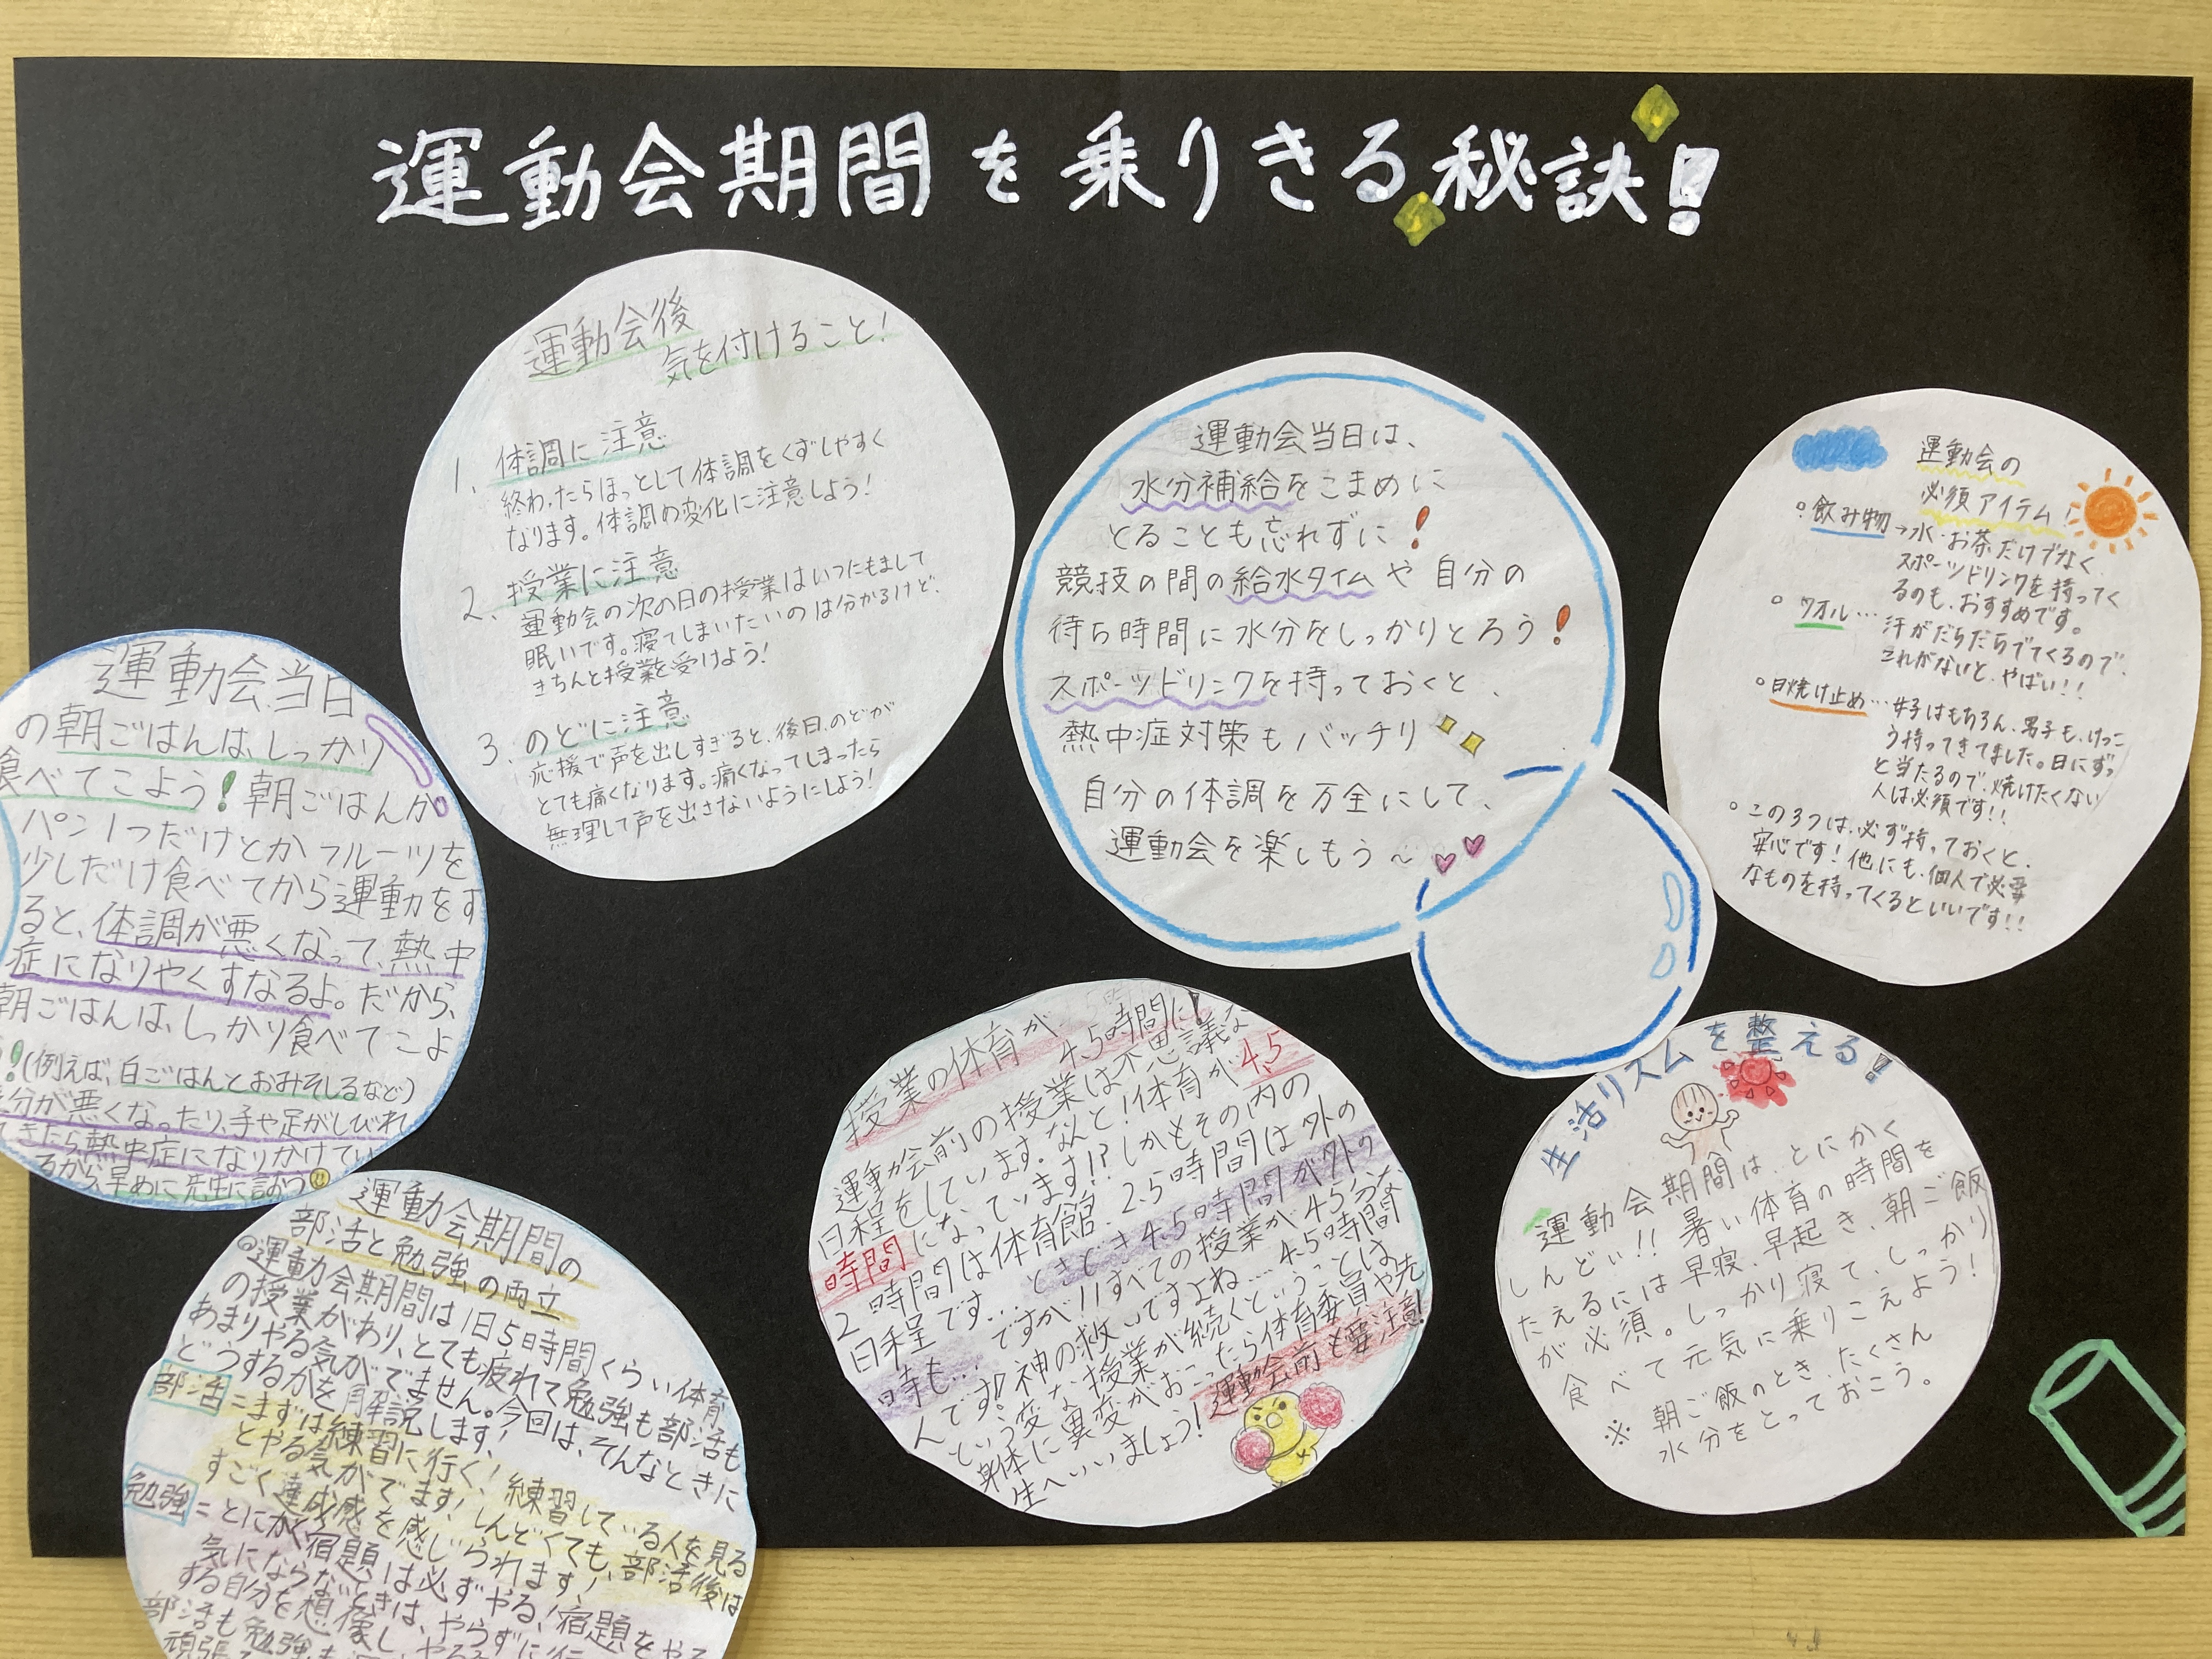 運動会期間を乗りきる秘訣!
運動会後
気を付けること!
1、体調に注意
終わったらほっとして体調をくずしやすく
なります。体調の変化に注意しよう!
2、授業に注意
運動会の次の日の授業はいつにもまして
眠いです。寝てしまいたいのは分かるけど、
きちんと授業を受けよう!
3、のどに注意
応援で声を出しすぎると、後日、のどが
とても痛くなります。痛くなってしまったら
無理して声を出さないようにしよう!
運動会当日は、
水分補給をこまめに
とることも忘れずに!
競技の間の給水タイムや自分の
待ち時間に水分をしっかりとろう!
スポーツドリンクを持っておくと、
熱中症対策もバッチリ
自分の体調を万全にして、
運動会を楽しもう~
運動会の
必須アイテム!
飲み物→水・お茶だけでなく
スポーツドリンクを持ってく
るのも、おすすめです。
タオル…汗がだらだらでてくるので、
これがないと、やばい!!
日焼け止め…女子はもちろん、男子も、けっこ
う持ってきてました。日にずっ
と当たるので、焼けたくない
人は必須です!!
この3つは、必ず持っておくと、
安心です!他にも、個人で必要
なものを持ってくるといいです!!
運動会当日
の朝ごはんは、しっかり
食べてこよう!朝ごはんが
パン1つだけとかフルーツを
少しだけ食べてから運動をす
ると、体調が悪くなって、熱中
症になりやくすなるよ。だから、
朝ごはんは、しっかり食べてこよ
!!(例えば、白ごはんとおみそしるなど)
分が悪くなったり、手や足がしびれ
てきたら熱中症になりかけてい
るから、早めに先生に言おう
運動会期間の
部活と勉強の両立
運動会期間は1日5時間くらい体育
の授業がわり、とても疲れて勉強も部活も
あまりやる気がでません。今回は、そんなときに
どうするかを解説します!
部活=まずは練習に行く!練習している人を見る
とやる気がでます!しんどくても、部活後は
すごく達成感を感じられます!
勉強=とにかく、宿題は必ずやる!宿題をやる
気にならないときは、やらずに
する自分を想像し、
部活も勉強も
頑張
授業の体育が
4.5時間に!
運動会前の授業は不思議な
日程をしています。なんと!体育が4.5
時間になっています!?しかもその内の
2時間は体育館、2.5時間は外の
日程です…ときどき4.5時間が外の
時も…ですが!!すべての授業が45分な
んです!神の救いですよね…4.5時間
という変な授業が続くということは
身体に異変がおこったら体育委員や先
生へいいましょう!運動会前も要注意!
生活リズムを整える!
運動会期間は、とにかく
しんどい!!暑い体育の時間を
たえるには早寝、早起き、朝ご飯
が必須。しっかり寝て、しっかり
食べて元気に乗りこえよう!
※朝ご飯のとき、たくさん
水分をとっておこう。